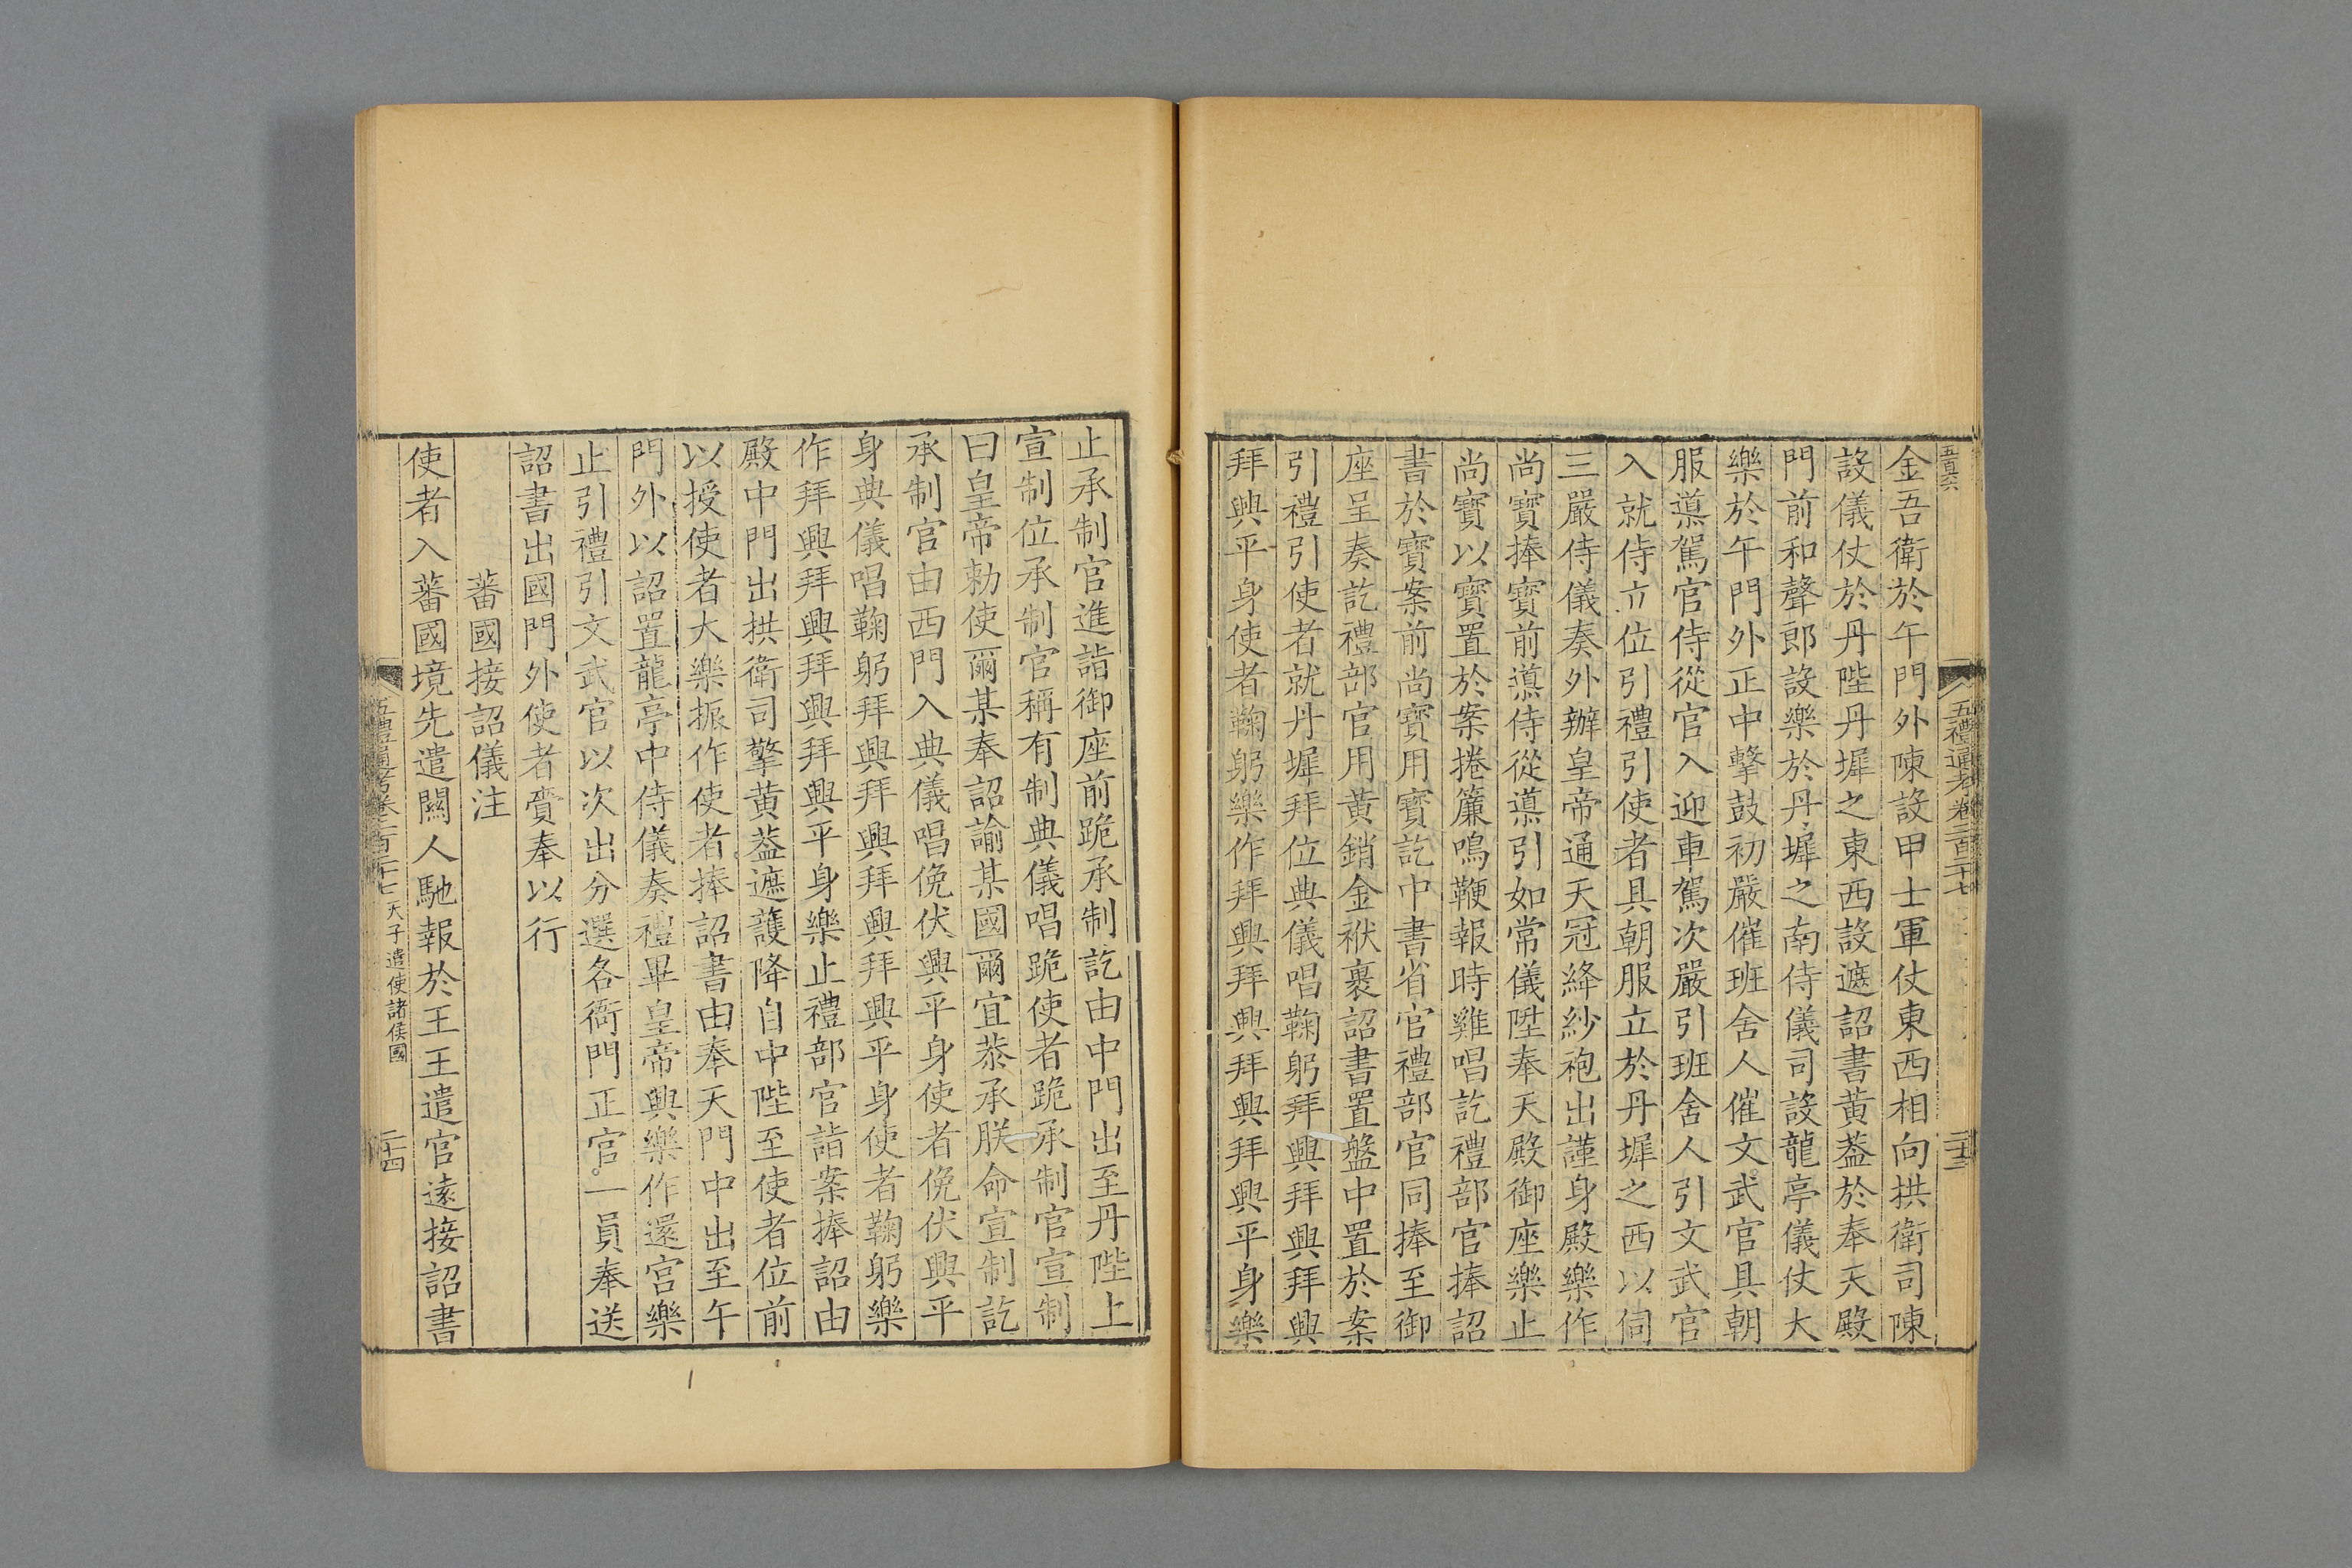 五百六
五禮通考卷二百二十七
二十三
金吾衛於午門外陳設甲士軍仗東西相向拱衛司陳
設儀仗於丹陛丹墀之東西設遮詔書黄葢於奉天殿
門前和聲郎設樂於丹墀之南侍儀司設龍亭儀仗大
樂於午門外正中擊鼓初嚴催班舍人催文武官具朝
服導駕官侍從官入迎車駕次嚴引班舍人引文武官
入就侍立位引禮引使者具朝服立於丹墀之西以伺
三嚴侍儀奏外辦皇帝通天冠絳紗袍出謹身殿樂作
尚寶捧寶前導侍從導引如常儀陞奉天殿御座樂止
尚寶以寶置於案捲簾鳴鞭報時雞唱訖禮部官捧詔
書於寶案前尚寶用寶訖中書省官禮部官同捧至御
座呈奏訖禮部官用黄銷金袱裹詔書置盤中置於案
引禮引使者就丹墀拜位典儀唱鞠躬拜興拜興拜興
拜興平身使者鞠躬樂作拜興拜興拜興拜興平身樂
止承制官進詣御座前跪承制訖由中門出至丹陛上
宣制位承制官稱有制典儀唱跪使者跪承制官宣制
曰皇帝勅使爾某奉詔諭某國爾宜恭承朕命宣制訖
承制官由西門入典儀唱俛伏興平身使者俛伏興平
身典儀唱鞠躬拜興拜興拜興拜興平身使者鞠躬樂
作拜興拜興拜興拜興平身樂止禮部官詣案捧詔由
殿中門出拱衛司擎黄葢遮護降自中陛至使者位前
以授使者大樂振作使者捧詔書由奉天門中出至午
門外以詔置龍亭中侍儀奏禮畢皇帝興樂作還宮樂
止引禮引文武官以次出分選各衙門正官一員奉送
詔書出國門外使者賫奉以行
蕃國接詔儀注
使者入蕃國境先遣關人馳報於王王遣官遠接詔書
五禮通考卷二百二十七 天子遣使諸侯國
二十四